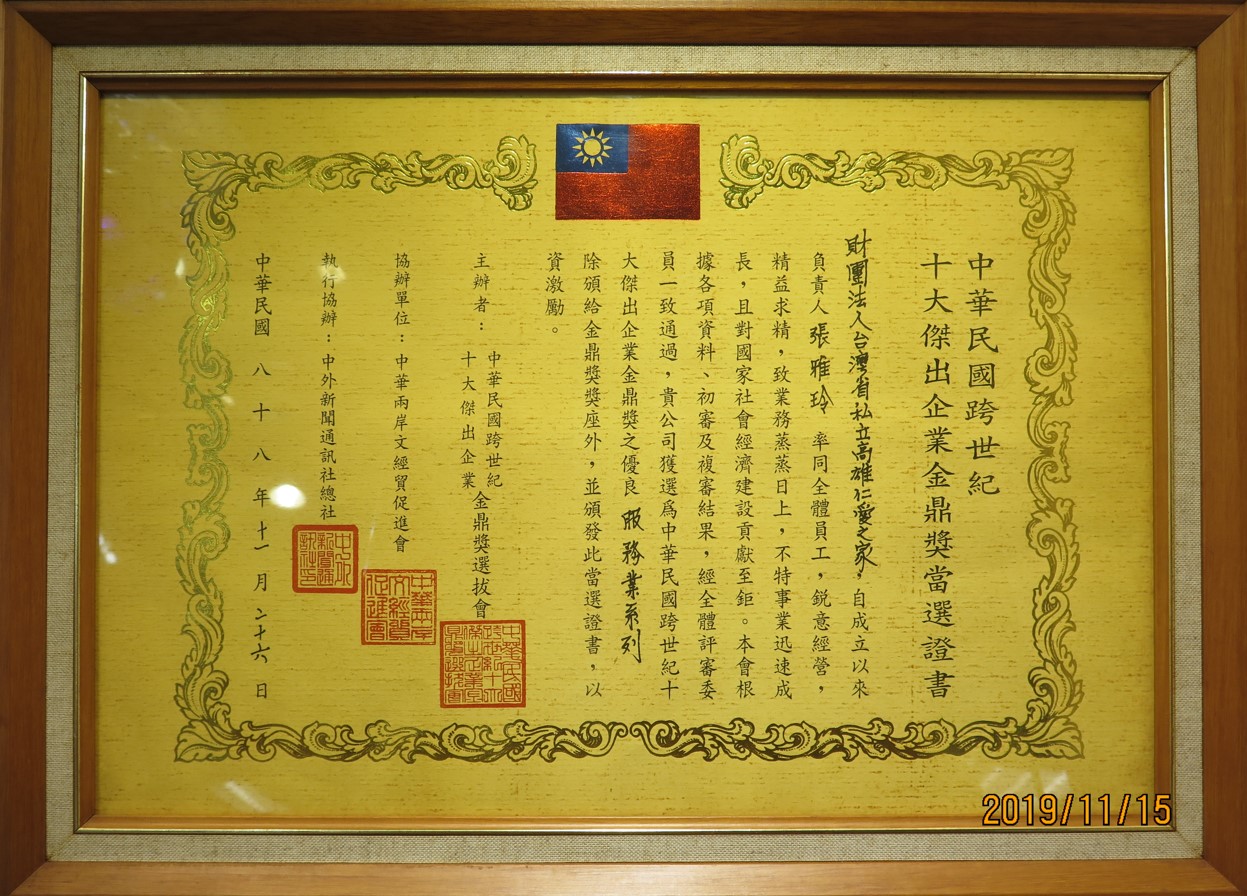 中華民國跨世紀
十大傑出企業金鼎獎當選證書
財團法人台灣省私立高雄仁愛之家,自成立以來
負責人張雅玲 率同全體員工,銳意經營,
精益求精,致業務蒸蒸日上,不特事業迅速成
長,且對國家社會經濟建設貢獻至鉅。本會根
據各項資料、初審及複審結果,經全體評審委
員一致通過,貴公司獲選為中華民國跨世紀十
大傑出企業金鼎獎之優良服務業系列
除頒給金鼎獎獎座外,並頒發此當選證書,以
資激勵。
主辦者:中華民國跨世紀
十大傑出企業金鼎獎選拔會
協辦單位:中華兩岸文經貿促進會
執行協辦:中外新聞通訊社總社
中華民國 八十八年十一月二十六日
中華民國
跨世紀十大
傑出企業金
鼎獎選拔會
中華兩岸
文經貿
促進會
中外
新聞通
訊社印
2019/11/15